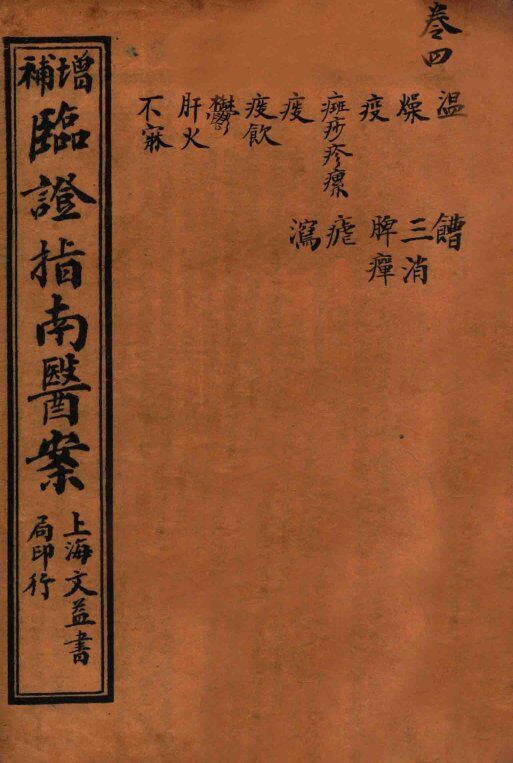 卷四
溫 嘈
燥 三消
疫 脾癉
癍痧疹瘰 瘧
痰 瀉
痰飲
鬱
肝火
不寐
增補
臨證指南醫案
上海文益書
局印行